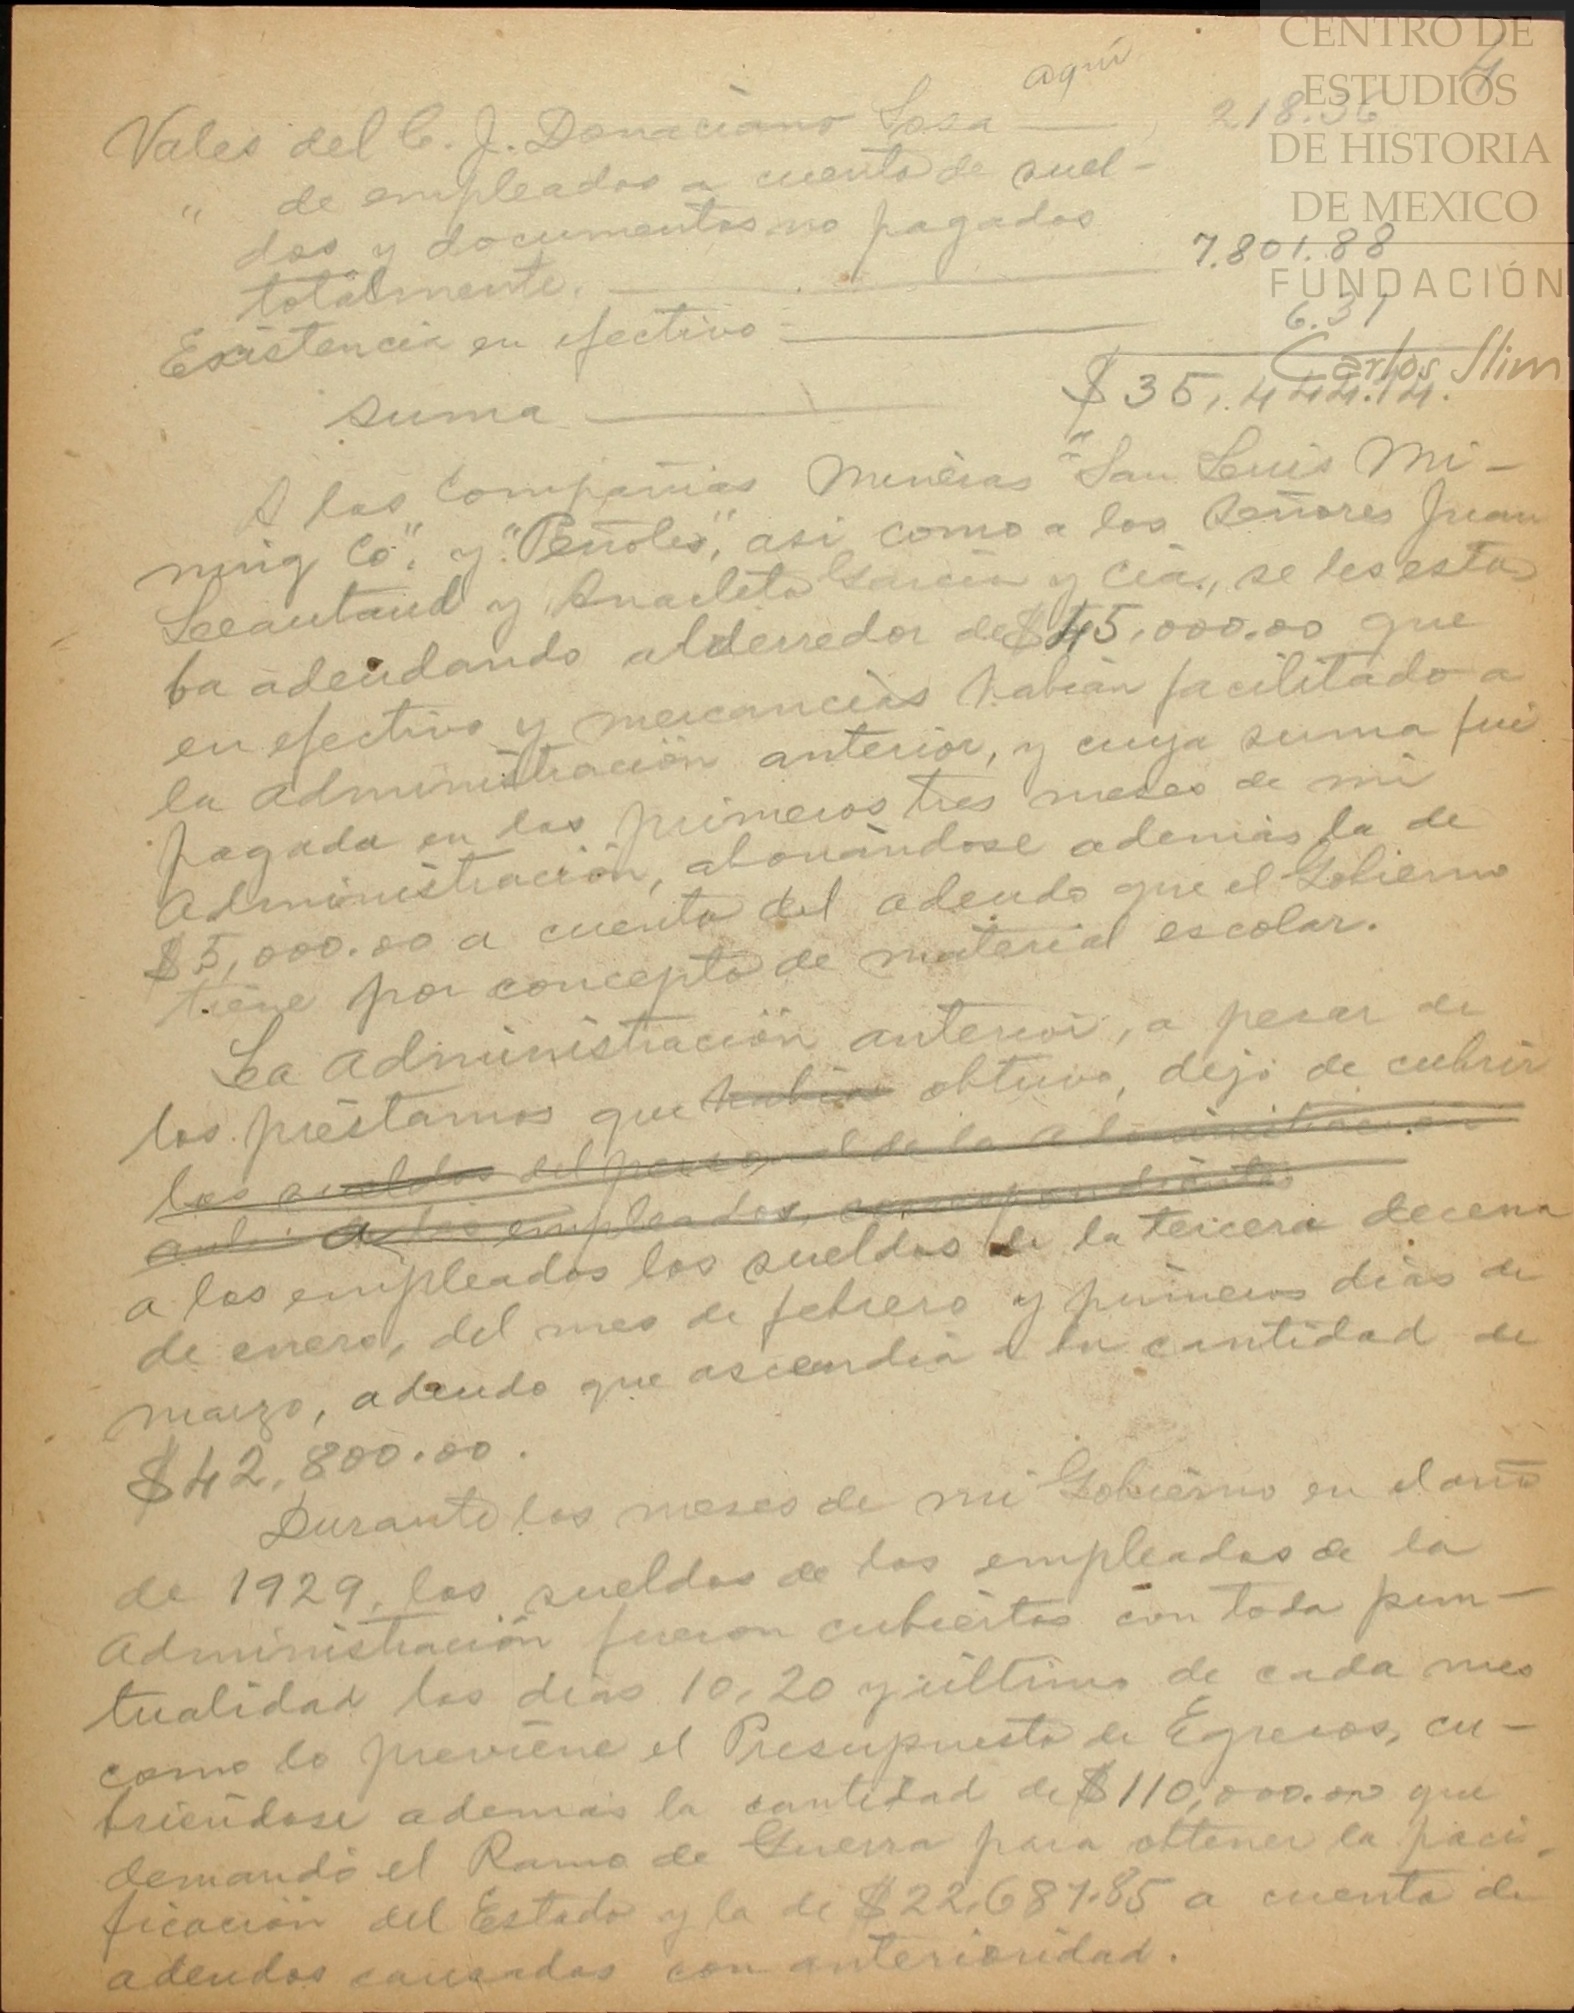 CENTRO DE
ESTUDIOS
DE HISTORIA
DE MEXICO
FUNDACIÓN
Carlos Slim
4
aquí
Vales del C. J. Donaciano Sosa — 218.36
" de empleados a cuenta de suel-
dos y documentos no pagados
totalmente. — 7.801.88
Existencia en efectivo — 6.31
suma — $35,444.14.
A las Compañias Mineras "San Luis Mi-
ning Co". y "Peñoles", asi como a los señores Juan
y Anacleto Garcia y Cia., se les esta
ba adeudando alderredor de $45,000.00 que
en efectivo y mercancias habian facilitado a
la administración anterior, y cuya suma fué
pagada en los primeros tres meses de mi
Administración, abonándose además la de
$5,000.00 a cuenta del adeudo que el Gobierno
tiene por concepto de material escolar.
La administración anterior, a pesar de
los préstamos que habia obtuvo, dejó de cubrir
los sueldos del personal de la administracion
a los empleados, correspondientes
a los empleados los sueldos de la tercera decena
de enero, del mes de febrero y primeros dias de
marzo, adeudo que ascendia a la cantidad de
$42,800.00.
Durante los meses de mi Gobierno en el año
de 1929, los sueldos de los empleados de la
administración fueron cubiertos con toda pun-
tualidad los dias 10, 20 y último de cada mes
como lo previene el Presupuesto de Egresos, cu-
briendose además la cantidad de $110,000.00 que
demandó el Ramo de Guerra para obtener la paci-
ficación del Estado y la de $22,687.85 a cuenta de
adeudos causados con anterioridad.